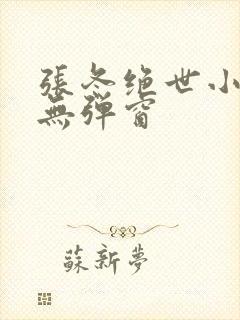 張冬绝世小
無弹窗
蘇新夢